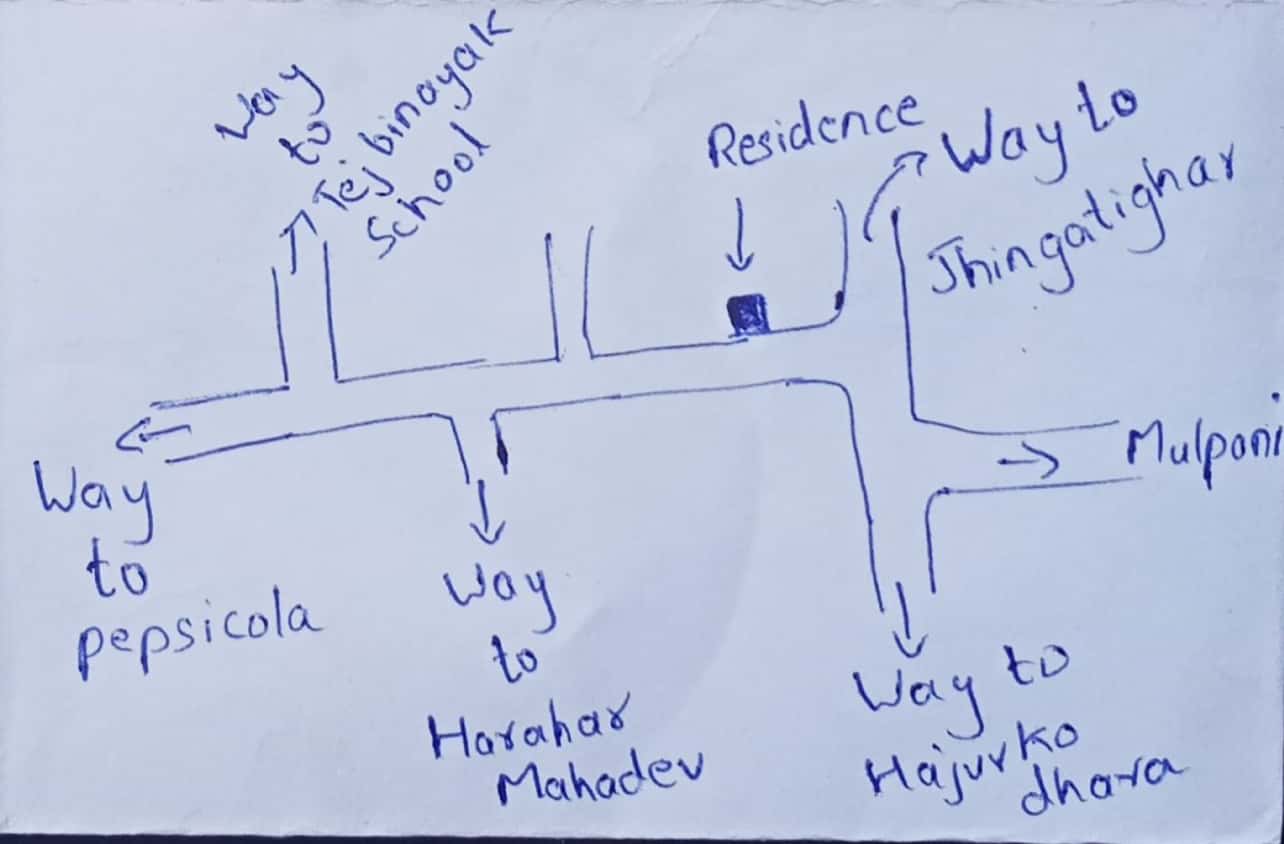 Way
to
Tejbinayak
School
Residence
Way to
Jhingatighar
Mulpani
Way
to
pepsicola
Way
to
Harahar
Mahadev
Way to
Hajurko
dhara